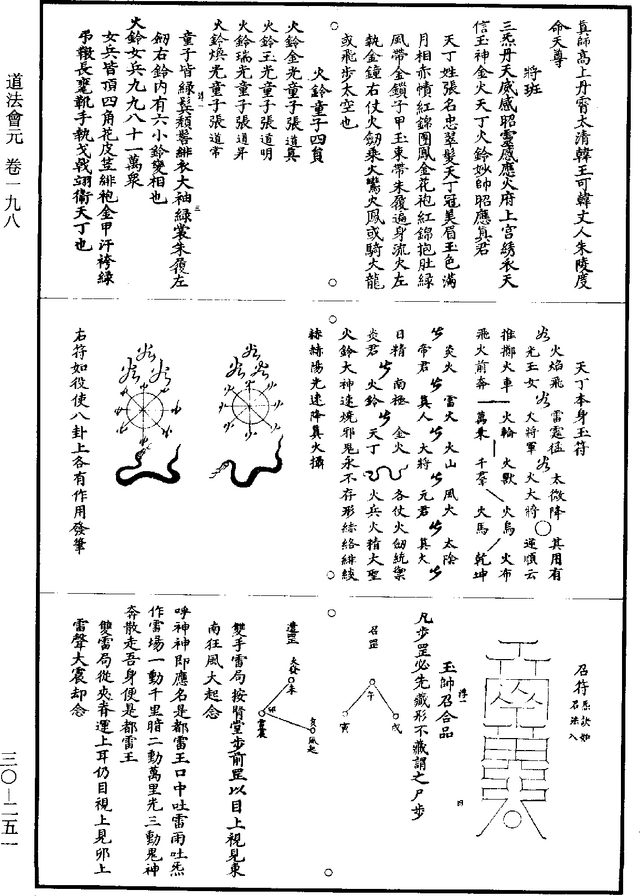 道法會元 卷一九八
真師高上丹霄太清韓王可韓丈人朱陵度
命天尊
將班
三炁丹天威感昭靈感應火府上宮綉衣天
信玉神金火天丁火鈴妙帥昭應真君
天丁姓張名忠翠髮天丁冠美眉玉色滿
月相赤幘紅錦團鳳金花袍紅錦抱肚綠
風帶金鎖子甲玉束帶朱履遍身流火左
執金鐘右仗火劒乘火鸞火鳳或騎火龍
或飛步太空也
火鈴童子四員
火鈴金光童子張道真
火鈴玉光童子張道明
火鈴瑞光童子張道昇
火鈴煥光童子張道常
童子皆綠鬢頳髻緋衣大袖綠裳朱履左
劒右鈴内有六小鈴變相也
火鈴女兵九九八十一萬衆
女兵皆頂四角花皮笠緋袍金甲汗袴綠
弔䩫長𩍐靴手執戈戟翊衞天丁也
天丁本身玉符
火焰飛 雷霆猛 太微降 其用有
光玉女 火將軍 火大將 運順云
推擲火車 火輪 火獸 火鳥 火布
飛火前奔 萬乘 千羣 火馬 乾坤
炎火 雷火 火山 風火 太陰
帝君 真人 大將 元君 真火
日精 南極 金火 各仗火劒統禦
炎君 火鈴 天丁 火兵火精大聖
火鈴大神速燒邪鬼永不存形絲絡緋綾
赫赫陽光速降真火攝
右符如役使八卦上各有作用發筆
召符
凡步罡必先藏形不藏謂之尸步
玉師召合品
召罡
午
戌
寅
遣罡
未
卯
雷震
亥
風起
雙手雷局按腎堂步前罡以目上視見東
南狂風大起念
呼神神即應名是都雷王口中吐雷雨吐炁
作雷場一動千里暗二動萬里光三動鬼神
奔散走吾身便是都雷王
雙雷局從夾脊運上耳仍目視上見卯上
雷聲大震却念
三〇—二五一